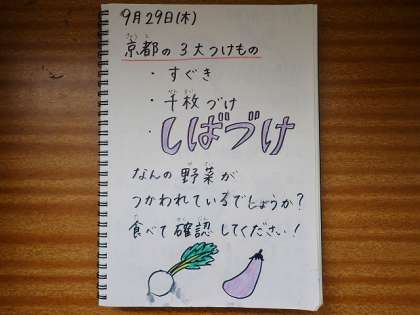 9月29日(木)
京都の3大つけもの
・すぐき
・千枚づけ
・しばづけ
なんの野菜が
つかわれているでしょうか？
食べて確認してください！